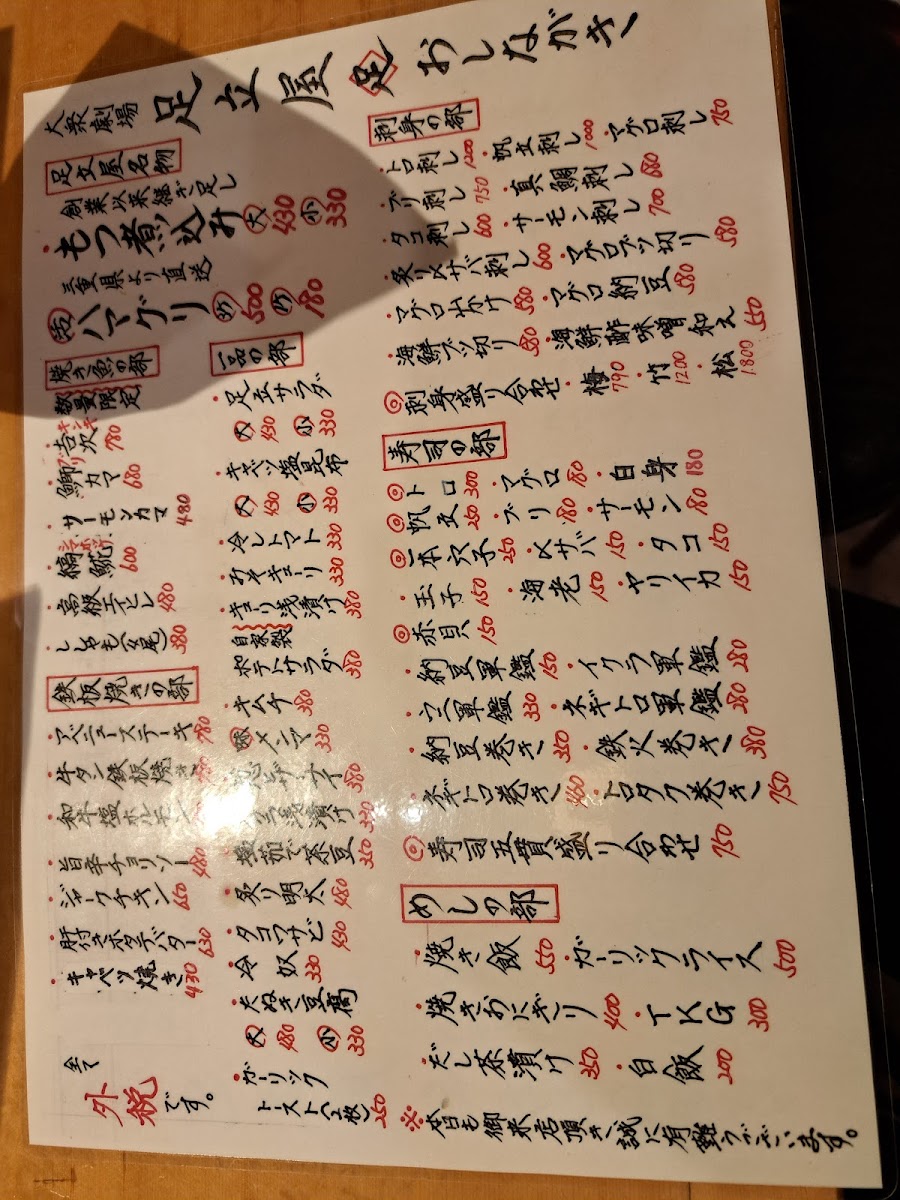 大衆劇場 足立屋 足 おしながき
足立屋名物
創業以来継ぎ足し
・もつ煮込み 大 430 小 330
三重県より直送
活 ハマグリ 500 180
焼き魚の部
数量限定
・吉次 キンキ 780
・鰤カマ ブリ 680
・サーモンカマ 480
・縞𩸽 シマホッケ 600
・高級エイヒレ 480
・ししゃも 380
鉄板焼きの部
・アベニューステーキ 780
・牛タン鉄板焼き
・和牛塩ホルモン
・旨辛チョリソー 480
・ジャークチキン 650
・肝付きホタテバター 630
・キャベツ焼き 430
全て
外税
です。
一品の部
・足立サラダ
大 430 小 330
・キャベツ塩昆布
大 430 小 330
・冷しトマト 330
・おそキュウリ 330
・キュウリ浅漬け 380
自家製
・ポテトサラダ 380
・キムチ 380
メンマ 330
380
浅漬け
塩茹で茶豆 350
・炙り明太 480
・タコワサビ 430
・冷奴 330
・たぬき豆腐
大 480 小 330
・ガーリック
トースト(2枚) 250
刺身の部
・トロ刺し 1200 ・帆立刺し 1000 ・マグロ刺し 750
・ブリ刺し 750 ・真鯛刺し 680
・タコ刺し 600 ・サーモン刺し 700
・炙り〆サバ刺し 600 ・マグロブツ切り 580
・マグロ山かけ 580 ・マグロ納豆 580
・海鮮ブツ切り 580 ・海鮮酢味噌和え 550
◎刺身盛り合わせ ・梅 790 ・竹 1200 ・松 1.800
寿司の部
◎トロ 300 ・マグロ 180 ・白身 180
◎帆立 250 ・ブリ 180 ・サーモン 180
◎一本穴子 250 ・〆サバ 150 ・タコ 150
・玉子 150 ・海老 150 ・ヤリイカ 150
◎赤貝 150
・納豆軍鑑 150 ・イクラ軍鑑 280
・ウニ軍鑑 330 ・ネギトロ軍鑑 280
・納豆巻き 350 ・鉄火巻き 380
・ネギトロ巻き 460 ・トロタク巻き 750
◎寿司五貫盛り合わせ 750
めしの部
・焼き飯 550 ・ガーリックライス 500
・焼きおにぎり 400 ・TKG 300
・だし茶漬け 350 ・白飯 200
※本日も御来店頂き誠に有難うございます。